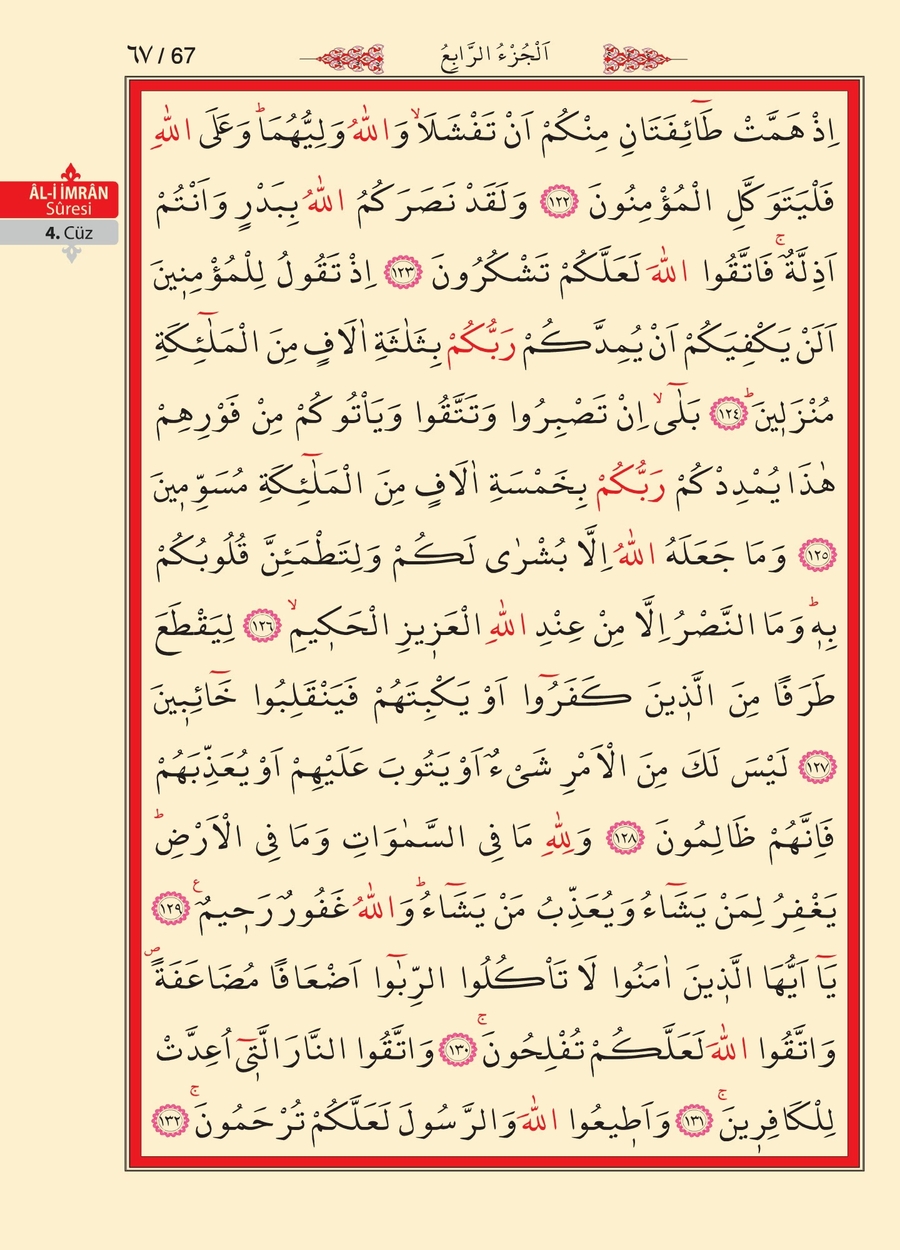 ٦٧ / 67
اَلْجُزْءُ الرَّابِعُ
ÂL-İ İMRÂN
Sûresi
4. Cüz
اِذْ هَمَّتْ طَٓائِفَتَانِ مِنْكُمْ اَنْ تَفْشَلَاۙ وَاللّٰهُ وَلِيُّهُمَاۜ وَعَلَى اللّٰهِ
فَلْيَتَوَكَّلِ الْمُؤْمِنُونَ ﴿١٢٢﴾ وَلَقَدْ نَصَرَكُمُ اللّٰهُ بِبَدْرٍ وَاَنْتُمْ
اَذِلَّةٌۚ فَاتَّقُوا اللّٰهَ لَعَلَّكُمْ تَشْكُرُونَ ﴿١٢٣﴾ اِذْ تَقُولُ لِلْمُؤْمِنٖينَ
اَلَنْ يَكْفِيَكُمْ اَنْ يُمِدَّكُمْ رَبُّكُمْ بِثَلٰثَةِ اٰلَافٍ مِنَ الْمَلٰٓئِكَةِ
مُنْزَلٖينَۜ ﴿١٢٤﴾ بَلٰٓىۙ اِنْ تَصْبِرُوا وَتَتَّقُوا وَيَأْتُوكُمْ مِنْ فَوْرِهِمْ
هٰذَا يُمْدِدْكُمْ رَبُّكُمْ بِخَمْسَةِ اٰلَافٍ مِنَ الْمَلٰٓئِكَةِ مُسَوِّمٖينَ
﴿١٢٥﴾ وَمَا جَعَلَهُ اللّٰهُ اِلَّا بُشْرٰى لَكُمْ وَلِتَطْمَئِنَّ قُلُوبُكُمْ
بِهٖۜ وَمَا النَّصْرُ اِلَّا مِنْ عِنْدِ اللّٰهِ الْعَزٖيزِ الْحَكٖيمِۙ ﴿١٢٦﴾ لِيَقْطَعَ
طَرَفًا مِنَ الَّذٖينَ كَفَرُٓوا اَوْ يَكْبِتَهُمْ فَيَنْقَلِبُوا خَٓائِبٖينَ
﴿١٢٧﴾ لَيْسَ لَكَ مِنَ الْاَمْرِ شَیْءٌ اَوْ يَتُوبَ عَلَيْهِمْ اَوْ يُعَذِّبَهُمْ
فَاِنَّهُمْ ظَالِمُونَ ﴿١٢٨﴾ وَلِلّٰهِ مَا فِى السَّمٰوَاتِ وَمَا فِى الْاَرْضِۜ
يَغْفِرُ لِمَنْ يَشَٓاءُ وَيُعَذِّبُ مَنْ يَشَٓاءُۜ وَاللّٰهُ غَفُورٌ رَحٖيمٌ ع ﴿١٢٩﴾
يَٓا اَيُّهَا الَّذٖينَ اٰمَنُوا لَا تَأْكُلُوا الرِّبٰٓوا اَضْعَافًا مُضَاعَفَةً ص
وَاتَّقُوا اللّٰهَ لَعَلَّكُمْ تُفْلِحُونَۚ ﴿١٣٠﴾ وَاتَّقُوا النَّارَ الَّتٖٓى اُعِدَّتْ
لِلْكَافِرٖينَۚ ﴿١٣١﴾ وَاَطٖيعُوا اللّٰهَ وَالرَّسُولَ لَعَلَّكُمْ تُرْحَمُونَۚ ﴿١٣٢﴾